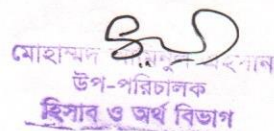 মোহাম্মদ
উপ-পরিচালক
হিসাব ও অর্থ বিভাগ